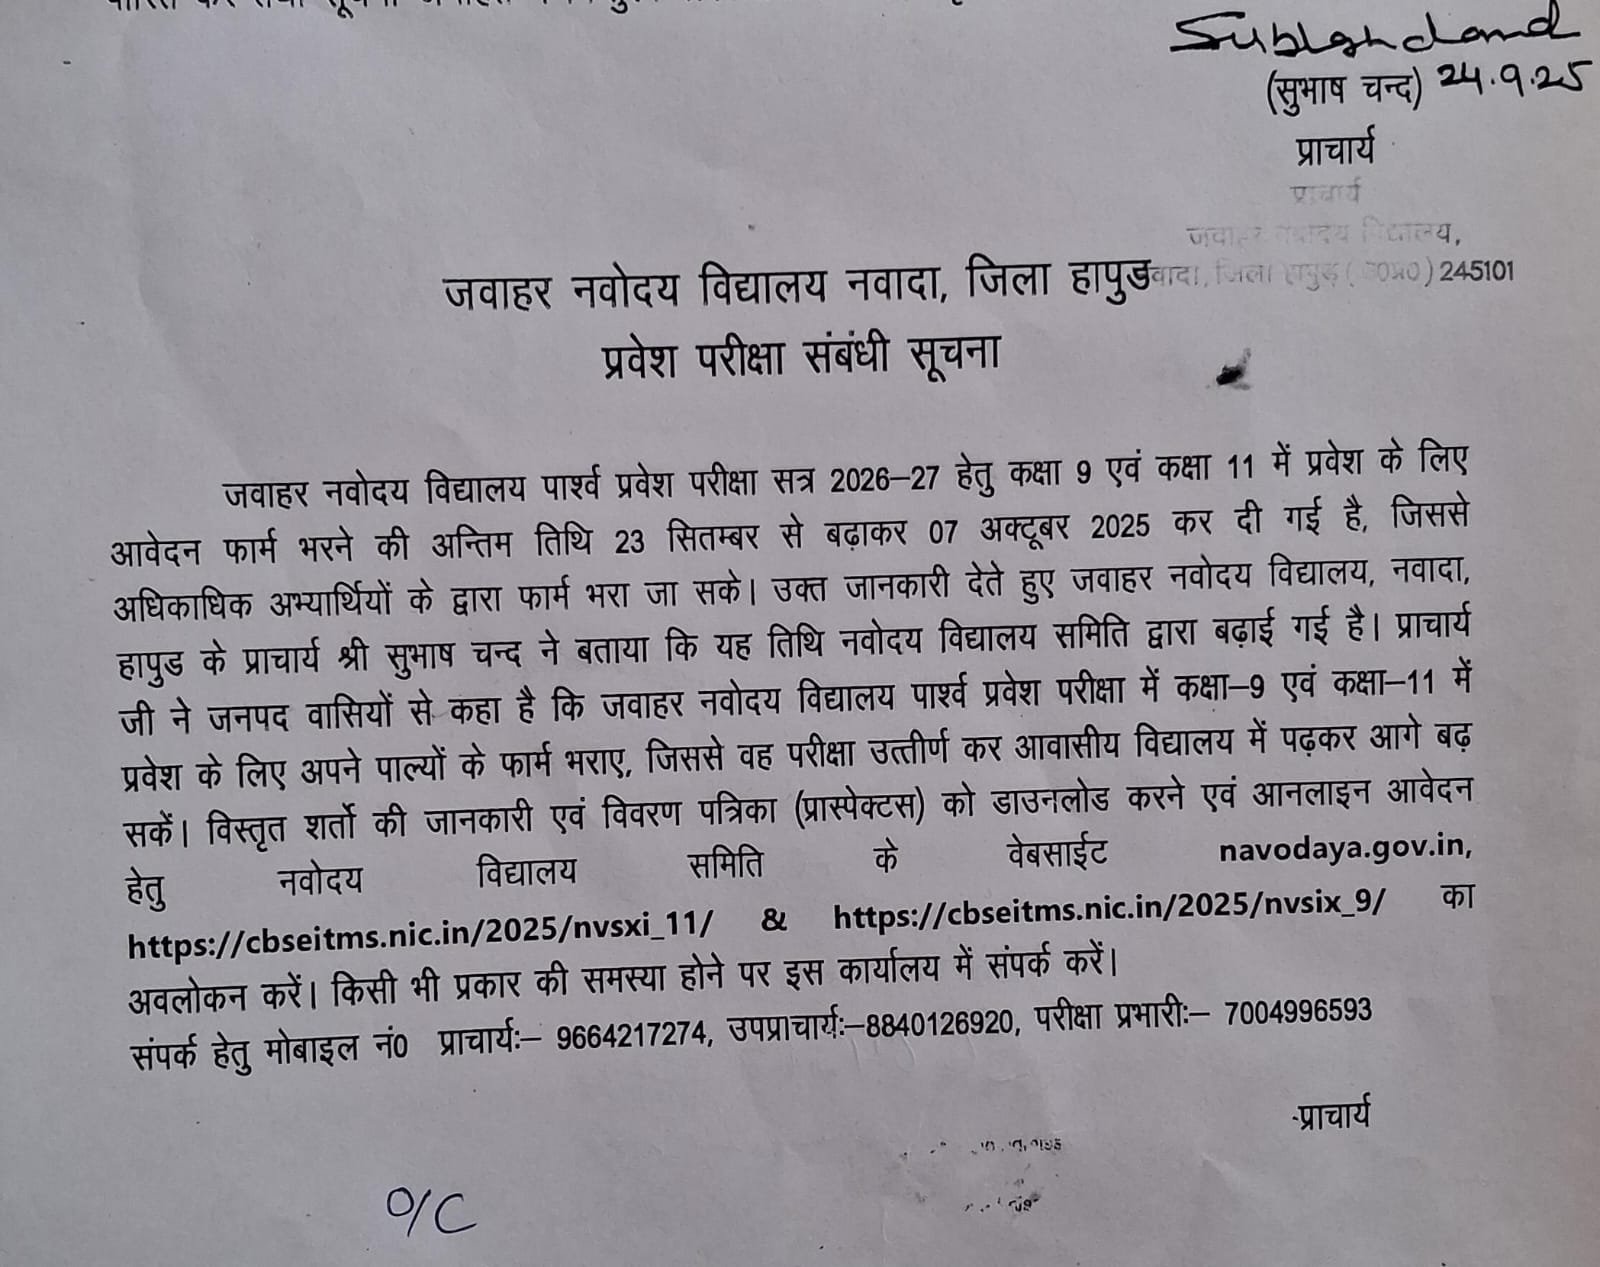 Subhash chand
(सुभाष चन्द) 24.9.25
प्राचार्य
प्राचार्य
जवाहर नवोदय विद्यालय,
जवाहर नवोदय विद्यालय नवादा, जिला हापुड
वादा, जिला हापुड़ (उ0प्र0) 245101
प्रवेश परीक्षा संबंधी सूचना
जवाहर नवोदय विद्यालय पार्श्व प्रवेश परीक्षा सत्र 2026–27 हेतु कक्षा 9 एवं कक्षा 11 में प्रवेश के लिए
आवेदन फार्म भरने की अन्तिम तिथि 23 सितम्बर से बढ़ाकर 07 अक्टूबर 2025 कर दी गई है, जिससे
अधिकाधिक अभ्यार्थियों के द्वारा फार्म भरा जा सके। उक्त जानकारी देते हुए जवाहर नवोदय विद्यालय, नवादा,
हापुड के प्राचार्य श्री सुभाष चन्द ने बताया कि यह तिथि नवोदय विद्यालय समिति द्वारा बढ़ाई गई है। प्राचार्य
जी ने जनपद वासियों से कहा है कि जवाहर नवोदय विद्यालय पार्श्व प्रवेश परीक्षा में कक्षा–9 एवं कक्षा–11 में
प्रवेश के लिए अपने पाल्यों के फार्म भराए, जिससे वह परीक्षा उत्तीर्ण कर आवासीय विद्यालय में पढ़कर आगे बढ़
सकें। विस्तृत शर्तो की जानकारी एवं विवरण पत्रिका (प्रास्पेक्टस) को डाउनलोड करने एवं आनलाइन आवेदन
हेतु नवोदय विद्यालय समिति के वेबसाईट navodaya.gov.in,
https://cbseitms.nic.in/2025/nvsxi_11/ & https://cbseitms.nic.in/2025/nvsix_9/ का
अवलोकन करें। किसी भी प्रकार की समस्या होने पर इस कार्यालय में संपर्क करें।
संपर्क हेतु मोबाइल नं0 प्राचार्यः– 9664217274, उपप्राचार्यः–8840126920, परीक्षा प्रभारीः– 7004996593
प्राचार्य
O/C